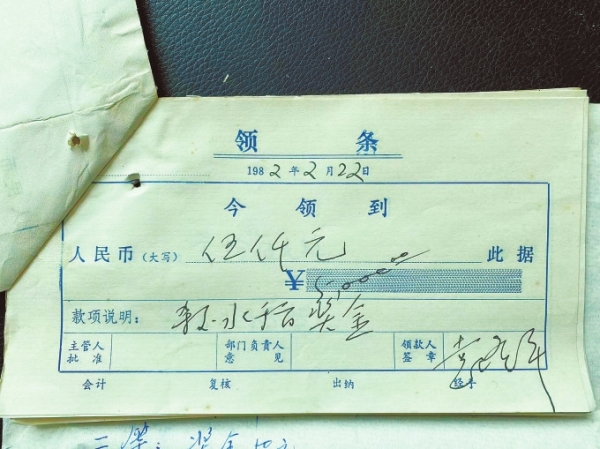 领 条
1982年2月22日
今 领 到
人民币(大写) 伍仟元 此据
¥5,000.00
款项说明: 水稻奖金
主管人批准 部门负责人意见 领款人签章 袁隆平
会计 复核 出纳 经手
二等: 奖金10元